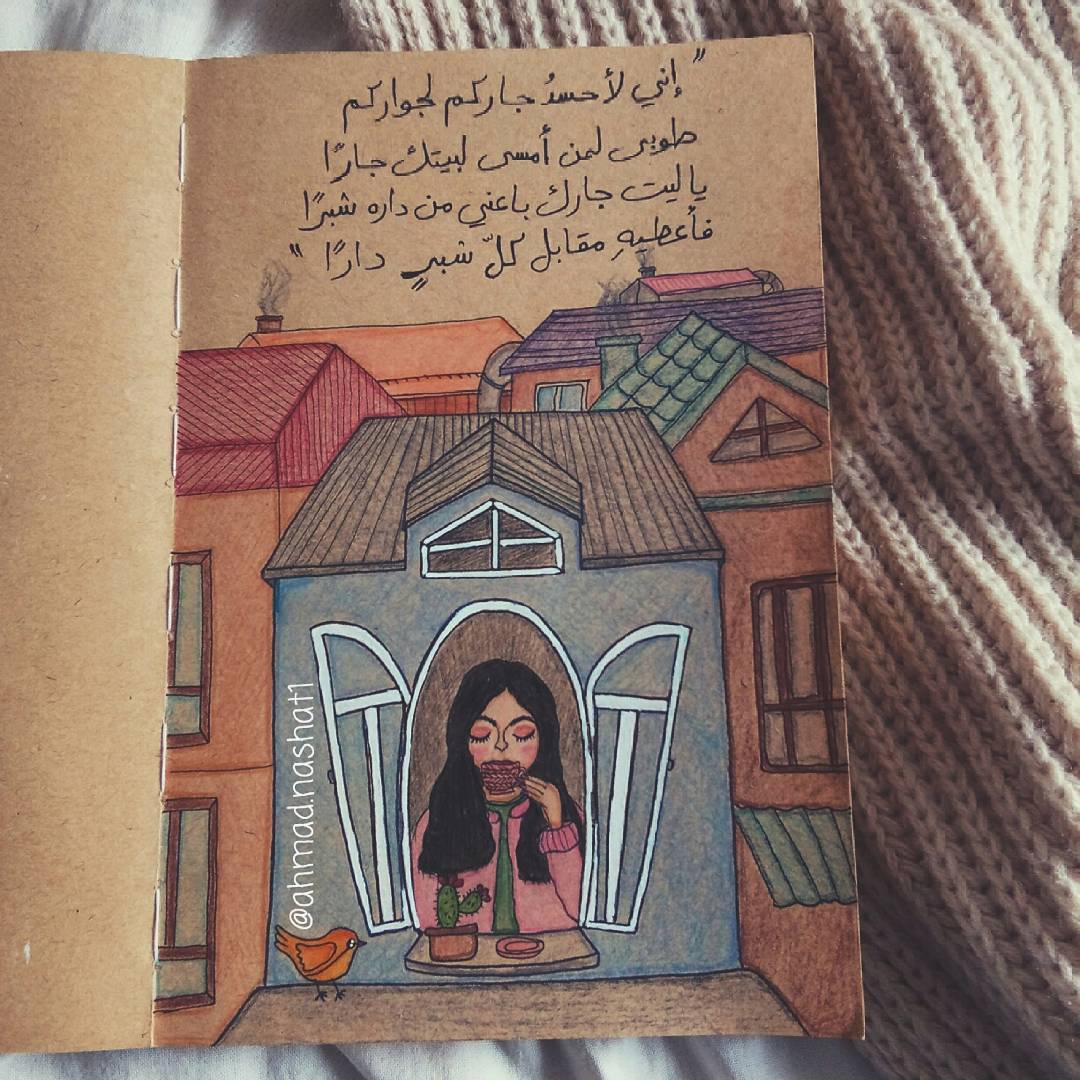 " إني لأحسدُ جاركم لجواركم
طوبى لمن أمسى لبيتك جارًا
ياليت جارك باعني من داره شبرًا
فأعطيهِ مقابل كلّ شبرٍ دارًا "
@ahmad.nashat1